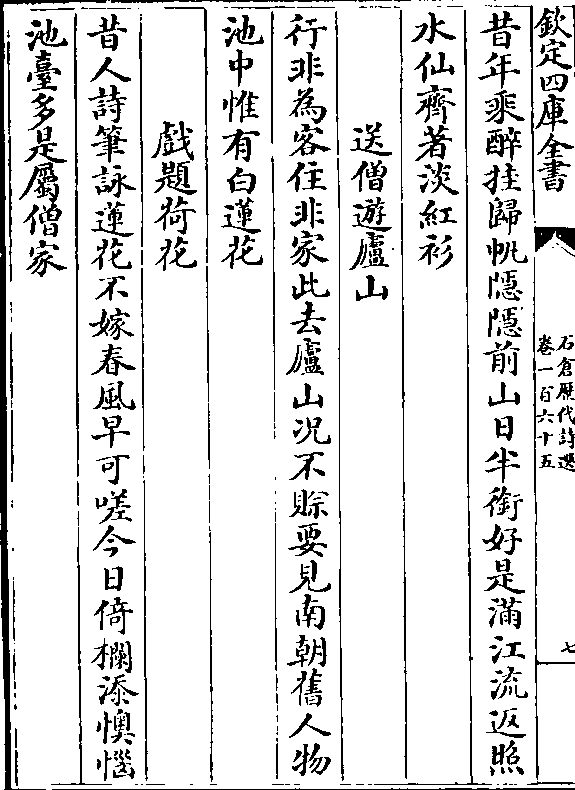 欽定四庫全書
石倉歴代詩選
卷一百六十五
七
昔年乘醉挂歸帆隱隱前山日半銜好是滿江流返照
水仙齊著淡紅衫
送僧遊廬山
行非為客住非家此去廬山况不賒要見南朝舊人物
池中惟有白蓮花
戲題荷花
昔人詩筆詠蓮花不嫁春風早可嗟今日倚欄添懊惱
池臺多是屬僧家